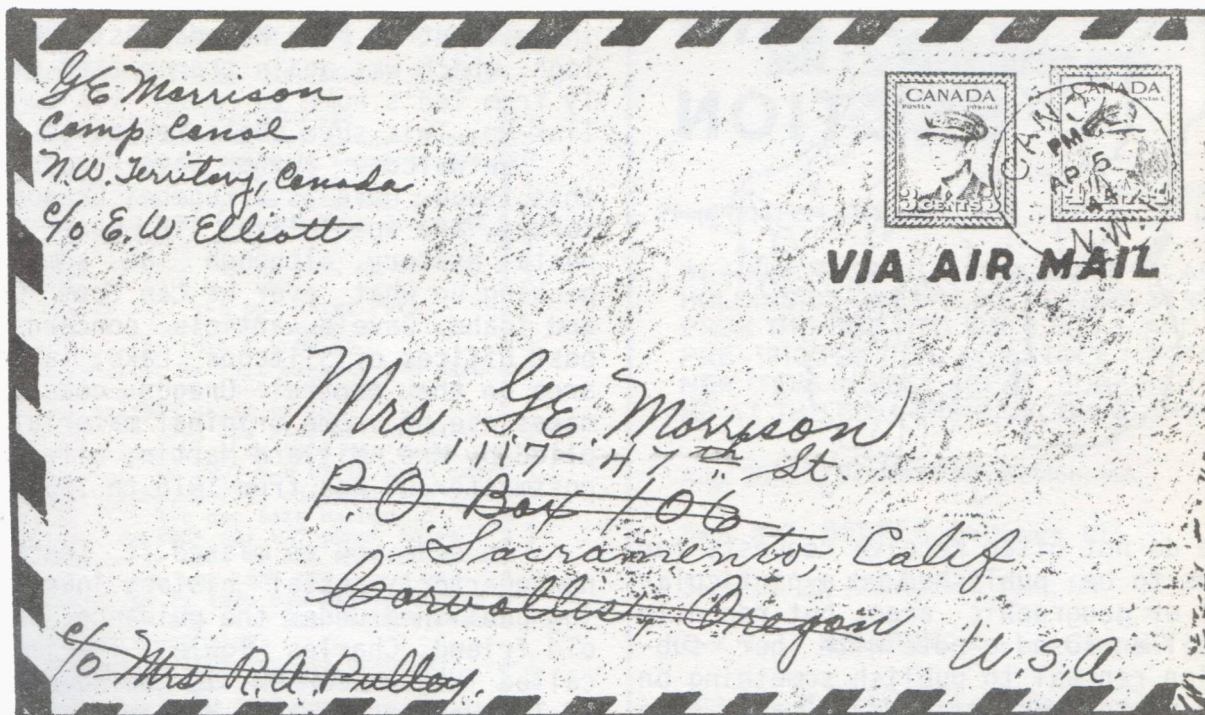 GE Morrison
Camp Canol
N.W. Territory, Canada
c/o E.W Elliott
CANADA
POSTES POSTAGE
3 CENTS 3
CANADA
CANOL
PM
AP 5
44
N.W.
VIA AIR MAIL
Mrs GE. Morrison
1117-47th St.
P.O. Box 106
Sacramento, Calif
Corvallis, Oregon
U.S.A.
c/o Mrs R.A. Pulley.